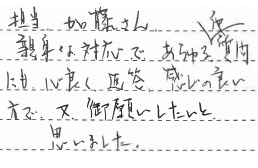 担当 加藤さん、
親身な対応で あらゆる質問
にも 心良く 返答 感じの良い
方で 又 御願いしたいと
思いました。